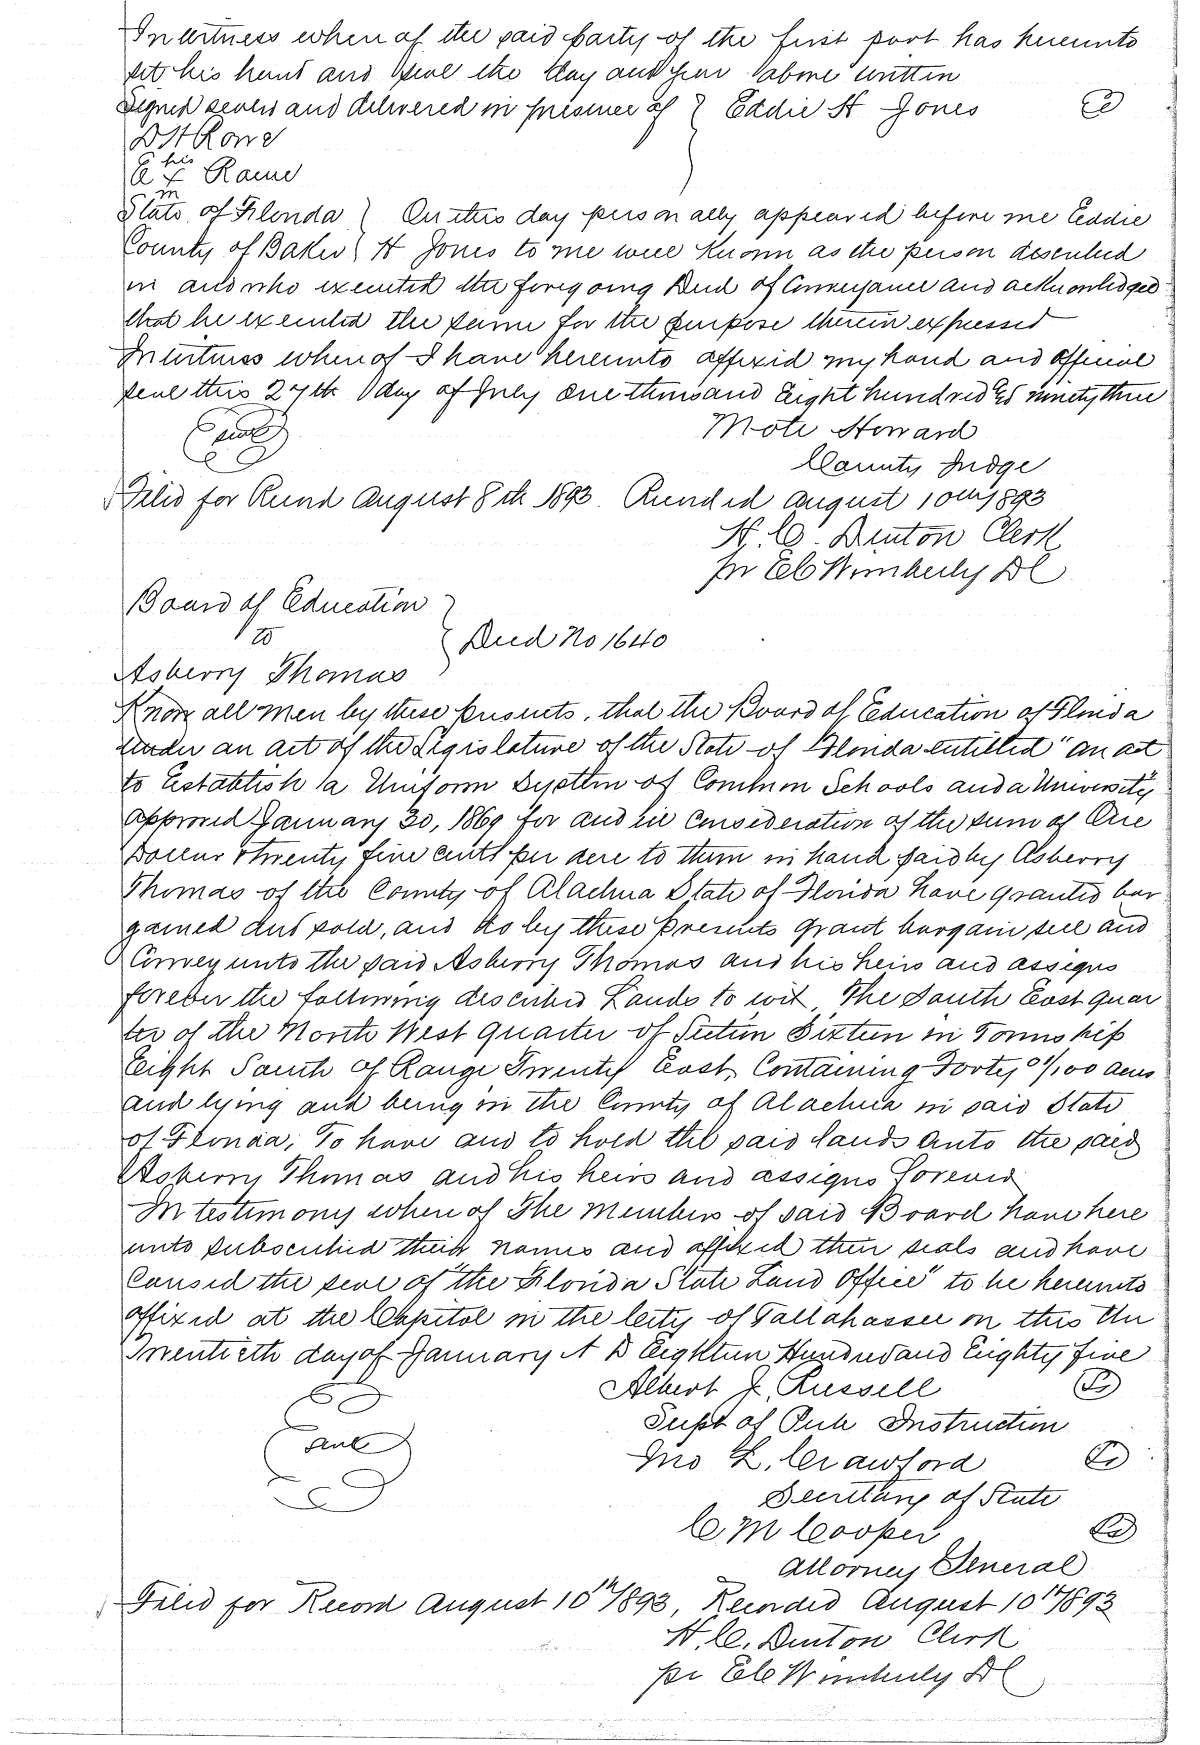 In witness where of the said party of the first part has hereunto
set his hand and seal the day and year above written
Signed sealed and delivered in presence of } Eddie H Jones
D H Rowe
his
E x Raine
m
State of Florida } On this day personally appeared before me Eddie
County of Baker } H Jones to me well known as the person described
in and who executed the foregoing Deed of Conveyance and acknowledged
that he executed the same for the purpose therein expressed
In witness where of I have hereunto affixed my hand and official
seal this 27th day of July one thousand Eight hundred & ninety three
Seal
Mote Howard
County Judge
Filed for Record August 8th 1893. Recorded August 10th 1893
H. C. Denton Clerk
pr E C Wimberly D C
Board of Education
to } Deed No 1640
Asberry Thomas
Know all men by these presents, that the Board of Education of Florida
under an act of the Legislature of the State of Florida entitled "an act
to Establish a Uniform System of Common Schools and a University"
approved January 30, 1869 for and in consideration of the sum of One
Dollar & twenty five cents per acre to them in hand paid by Asberry
Thomas of the County of Alachua State of Florida have granted bar
gained and sold, and do by these presents grant bargain sell and
Convey unto the said Asberry Thomas and his heirs and assigns
forever the following described Lands to wit, The South East quar
ter of the North West quarter of Section Sixteen in Township
Eight South of Range Twenty East, Containing Forty 0/100 acres
and lying and being in the County of Alachua in said State
of Florida, To have and to hold the said lands unto the said
Asberry Thomas and his heirs and assigns forever
In testimony where of The Members of said Board have here
unto subscribed their names and affixed their seals and have
Caused the seal of "the Florida State Land Office" to be hereunto
affixed at the Capitol in the City of Tallahassee on this the
Twentieth day of January A D Eighteen Hundred and Eighty five
Albert J. Russell
Supt of Pub Instruction
Seal
Jno L. Crawford
Secretary of State
C M Cooper
Attorney General
Filed for Record August 10th 1893, Recorded August 10th 1893
H. C. Denton Clerk
pr E C Wimberly D C